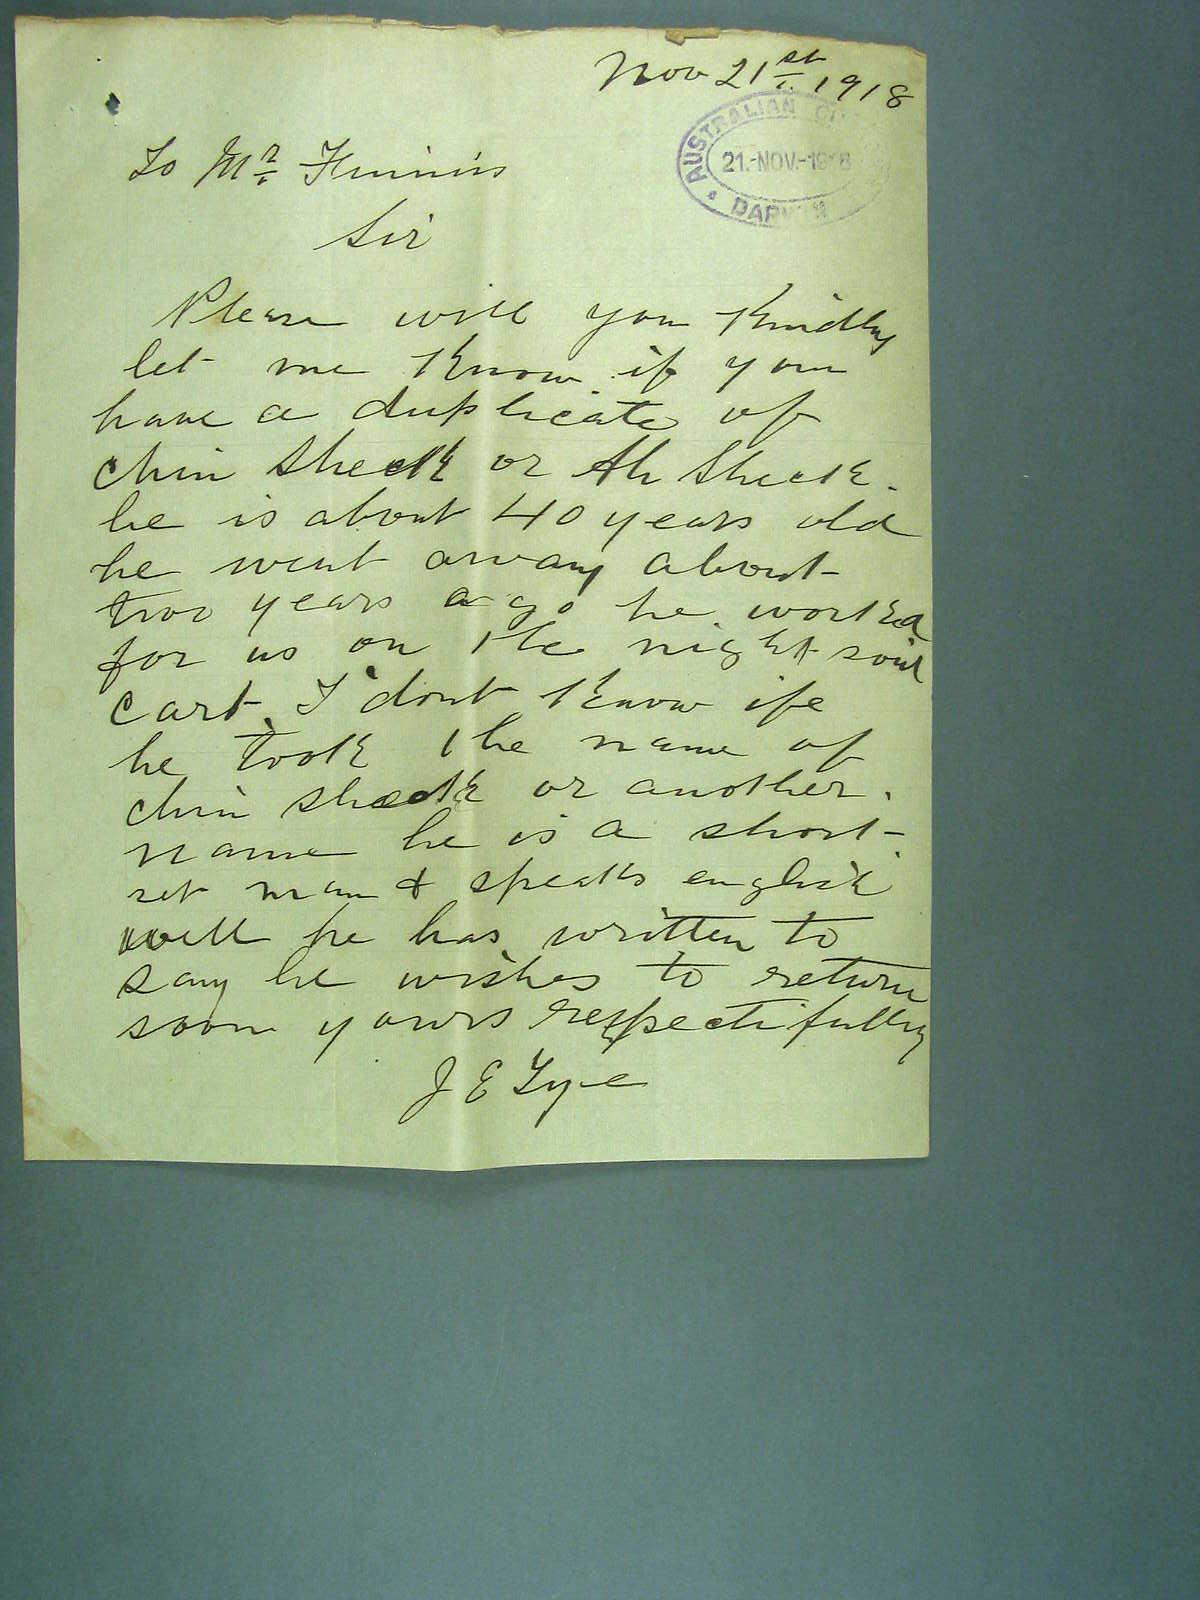 Nov 21st 1918
AUSTRALIAN
21.-NOV.-1918
DARWIN
To Mr Finniss
Sir
Please will you Kindly
let me Know if you
have a duplicate of
Chin Sheck or Ah Sheck.
he is about 40 years old
he went away about
two years ago he worked
for us on the night soil
cart. I dont Know ife
he took the name of
Chin Sheck or another.
name he is a short
set man & speaks english
well he has written to
say he wishes to return
soon yours respectifully
J E Tye